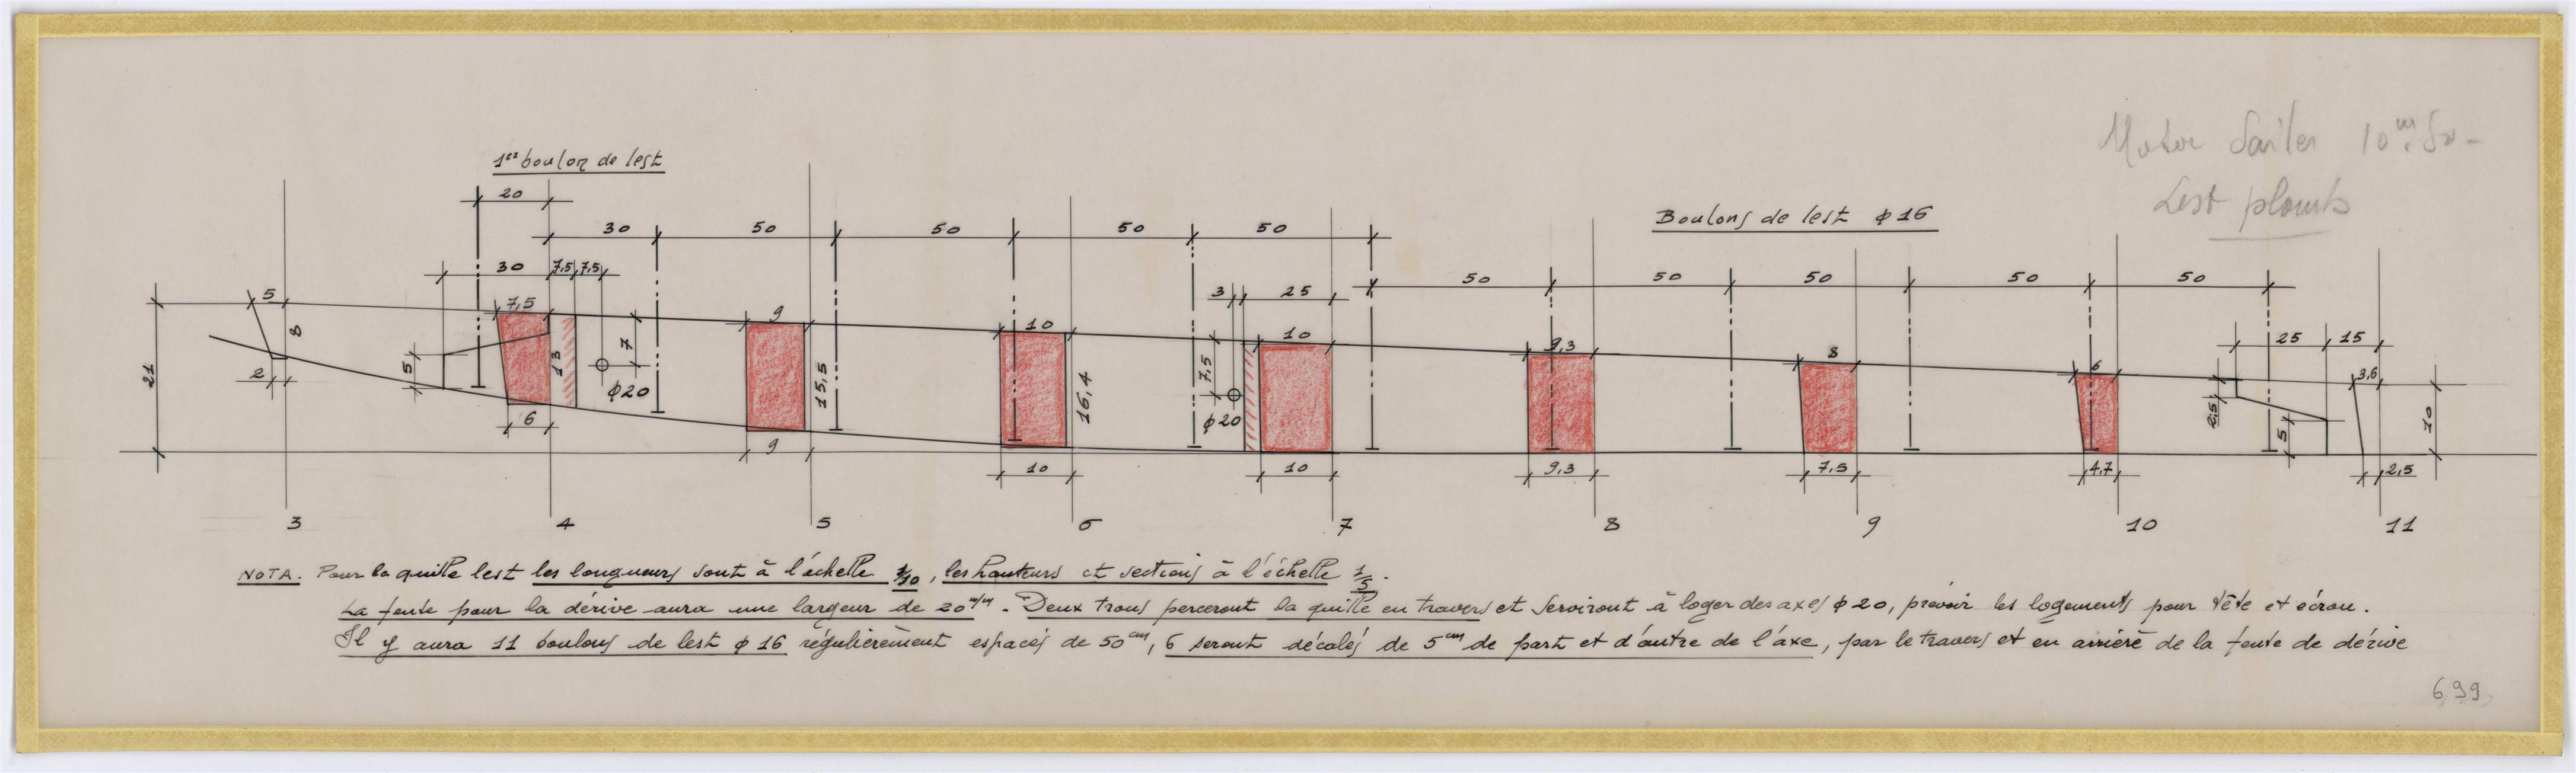 Motor Sailer 10m.50-
Lest plomb
1er boulon de lest
Boulons de lest ϕ 16
20
30 50 50 50 50
50 50 50 50 50
30 7,5 7,5
5 8 2 21
7,5 13 6 5
7 ϕ20
9 15,5 9
10 16,4 10
3 25 7,5 ϕ20
10 10
9,3 9,3
8 7,5
6 4,7
25 15 2,5 5
3,6 10 2,5
3 4 5 6 7 8 9 10 11
NOTA. Pour la quille lest les longueurs sont à l'échelle 1/10, les hauteurs et sections à l'échelle 1/5.
La fente pour la dérive aura une largeur de 20 m/m. Deux trous perceront la quille en travers et serviront à loger des axes ϕ 20, prévoir les logements pour tête et écrou.
Il y aura 11 boulons de lest ϕ 16 régulièrement espacés de 50cm, 6 seront décalés de 5cm de part et d'autre de l'axe, par le travers et en arrière de la fente de dérive
699